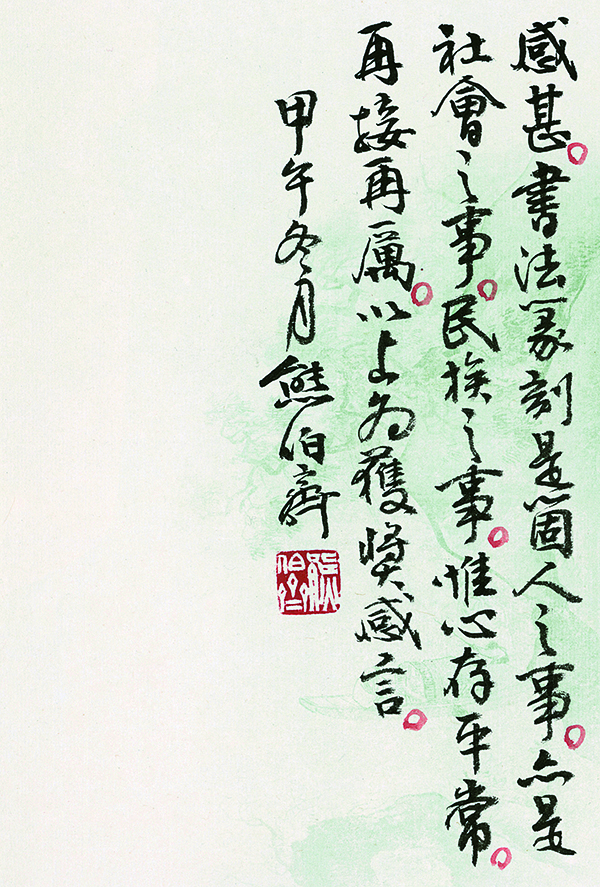 感甚。書法篆刻是箇人之事。亦是
社會之事。民族之事。惟心存平常。
再接再厲。以上為獲獎感言。
甲午冬月熊伯齊
熊伯齊